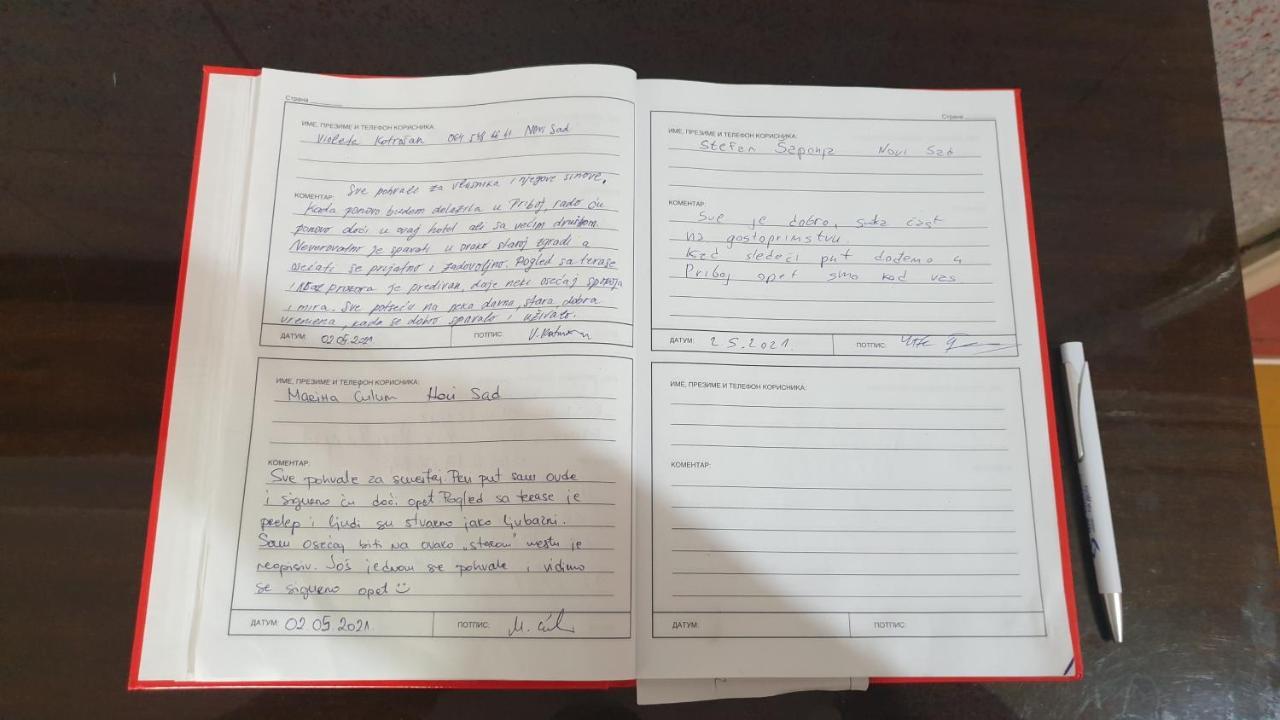 Страна
ИМЕ, ПРЕЗИМЕ И ТЕЛЕФОН КОРИСНИКА:
Violeta Kotrošan Novi Sad
КОМЕНТАР:
Sve pohvale za vlasnika i njegove sinove.
Kada ponovo budem dolazila u Priboj, rado ću
ponovo doći u ovaj hotel ali sa većim društvom.
Neverovatno je spavati u preko staroj zgradi a
osećati se prijatno i zadovoljno. Pogled sa terase
i prozora je predivan, daje neki osećaj spokoja
i mira. Sve potseća na neka davna, stara dobra
vremena, kada se dobro spavalo i uživalo.
ДАТУМ: 02.05.2021.
ПОТПИС:
ИМЕ, ПРЕЗИМЕ И ТЕЛЕФОН КОРИСНИКА:
Ćulum Sad
КОМЕНТАР:
Sve pohvale za smeštaj. Prvi put sam ovde
i sigurno ću doći opet. Pogled sa terase je
prelep i ljudi su stvarno jako ljubazni.
Sam osećaj biti na ovako „starom" mestu je
neopisiv. Još jednom sve pohvale i vidimo
se sigurno opet ☺
ДАТУМ: 02.05.2021.
ПОТПИС:
Страна
ИМЕ, ПРЕЗИМЕ И ТЕЛЕФОН КОРИСНИКА:
Stefan Šaponja Novi Sad
КОМЕНТАР:
Sve je dobro, svaka čast
na gostoprimstvu.
Kad sledeći put dođemo u
Priboj opet smo kod vas.
ДАТУМ: 2.5.2021.
ПОТПИС:
ИМЕ, ПРЕЗИМЕ И ТЕЛЕФОН КОРИСНИКА:
КОМЕНТАР:
ДАТУМ:
ПОТПИС: